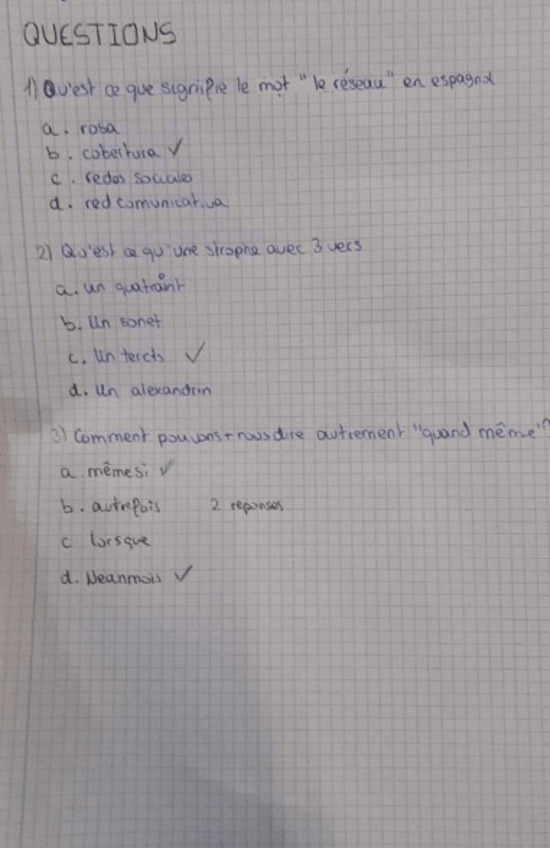 QUESTIONS
1) Qu'est ce que signifie le mot "le réseau" en espagnol
a. rosa
b. cobertura ✓
c. redes sociales
d. red comunicativa
2) Qu'est ce qu'une strophe avec 3 vers
a. un quatraint
b. Un sonet
c. Un tercts ✓
d. Un alexandrin
3) Comment pouvons-nous dire autrement "quand même"?
a mêmesi ✓
b. autrefois 2 reponses
c lorsque
d. Neanmois ✓